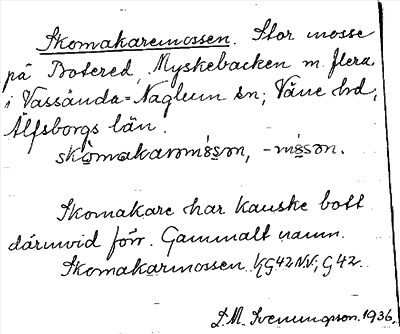 Skomakaremossen. Stor mosse
på Botered, Myskebacken m. flera
i Vassända-Naglum sn; Väne hd,
Älfsborgs län.
Skomakare har kanske bott
därinvid förr. Gammalt namn.
Skomakarmossen G42NV; G42.
1936.